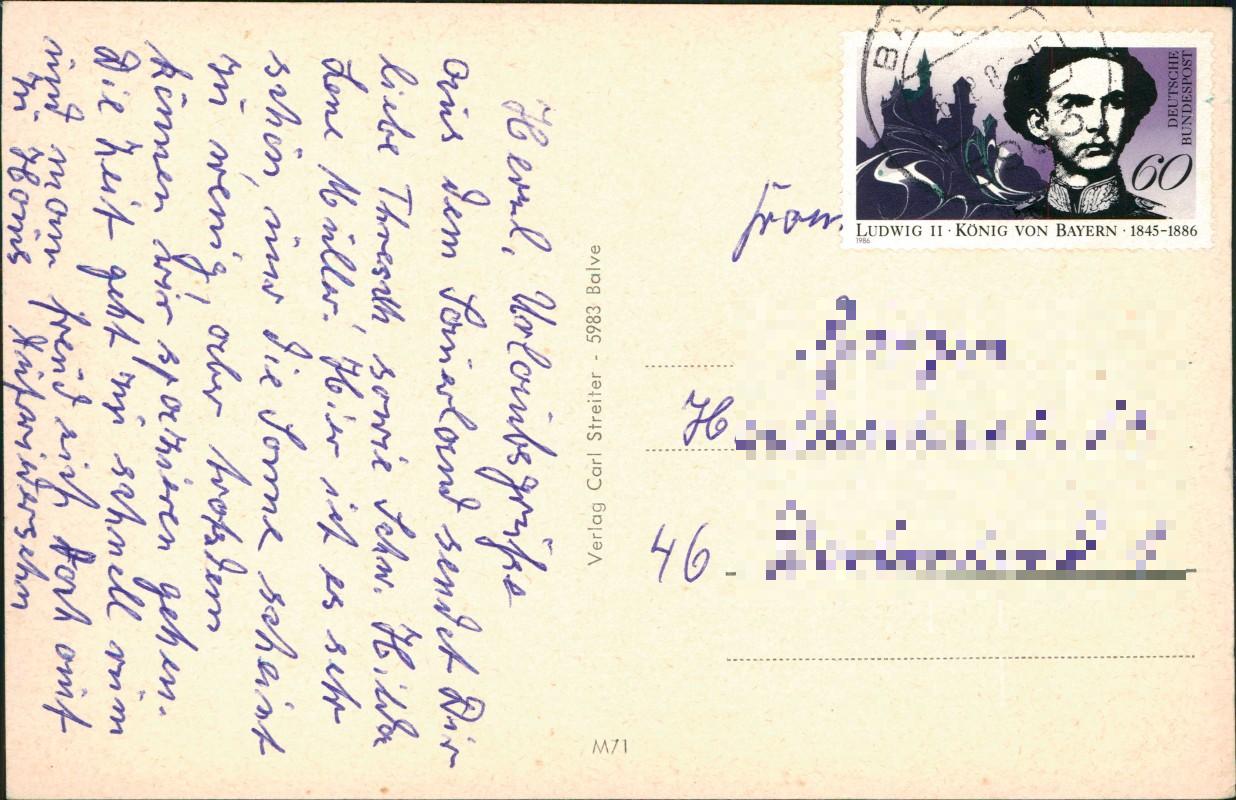 Herzl. Urlaubsgrüße
aus dem Sauerland sendet Dir
liebe Theresth sowie Schw. Hilda
Lene Müller. Hier ist es sehr
schön, nur die Sonne scheint
zu wenig, aber trotzdem
können wir spazieren gehen.
Die Zeit geht zu schnell rum
und man freud sich doch auf
zu Haus Aufwidersehn
Verlag Carl Streiter - 5983 Balve
M71
DEUTSCHE
BUNDESPOST
60
LUDWIG II · KÖNIG VON BAYERN · 1845-1886
1986
Frau
H
46